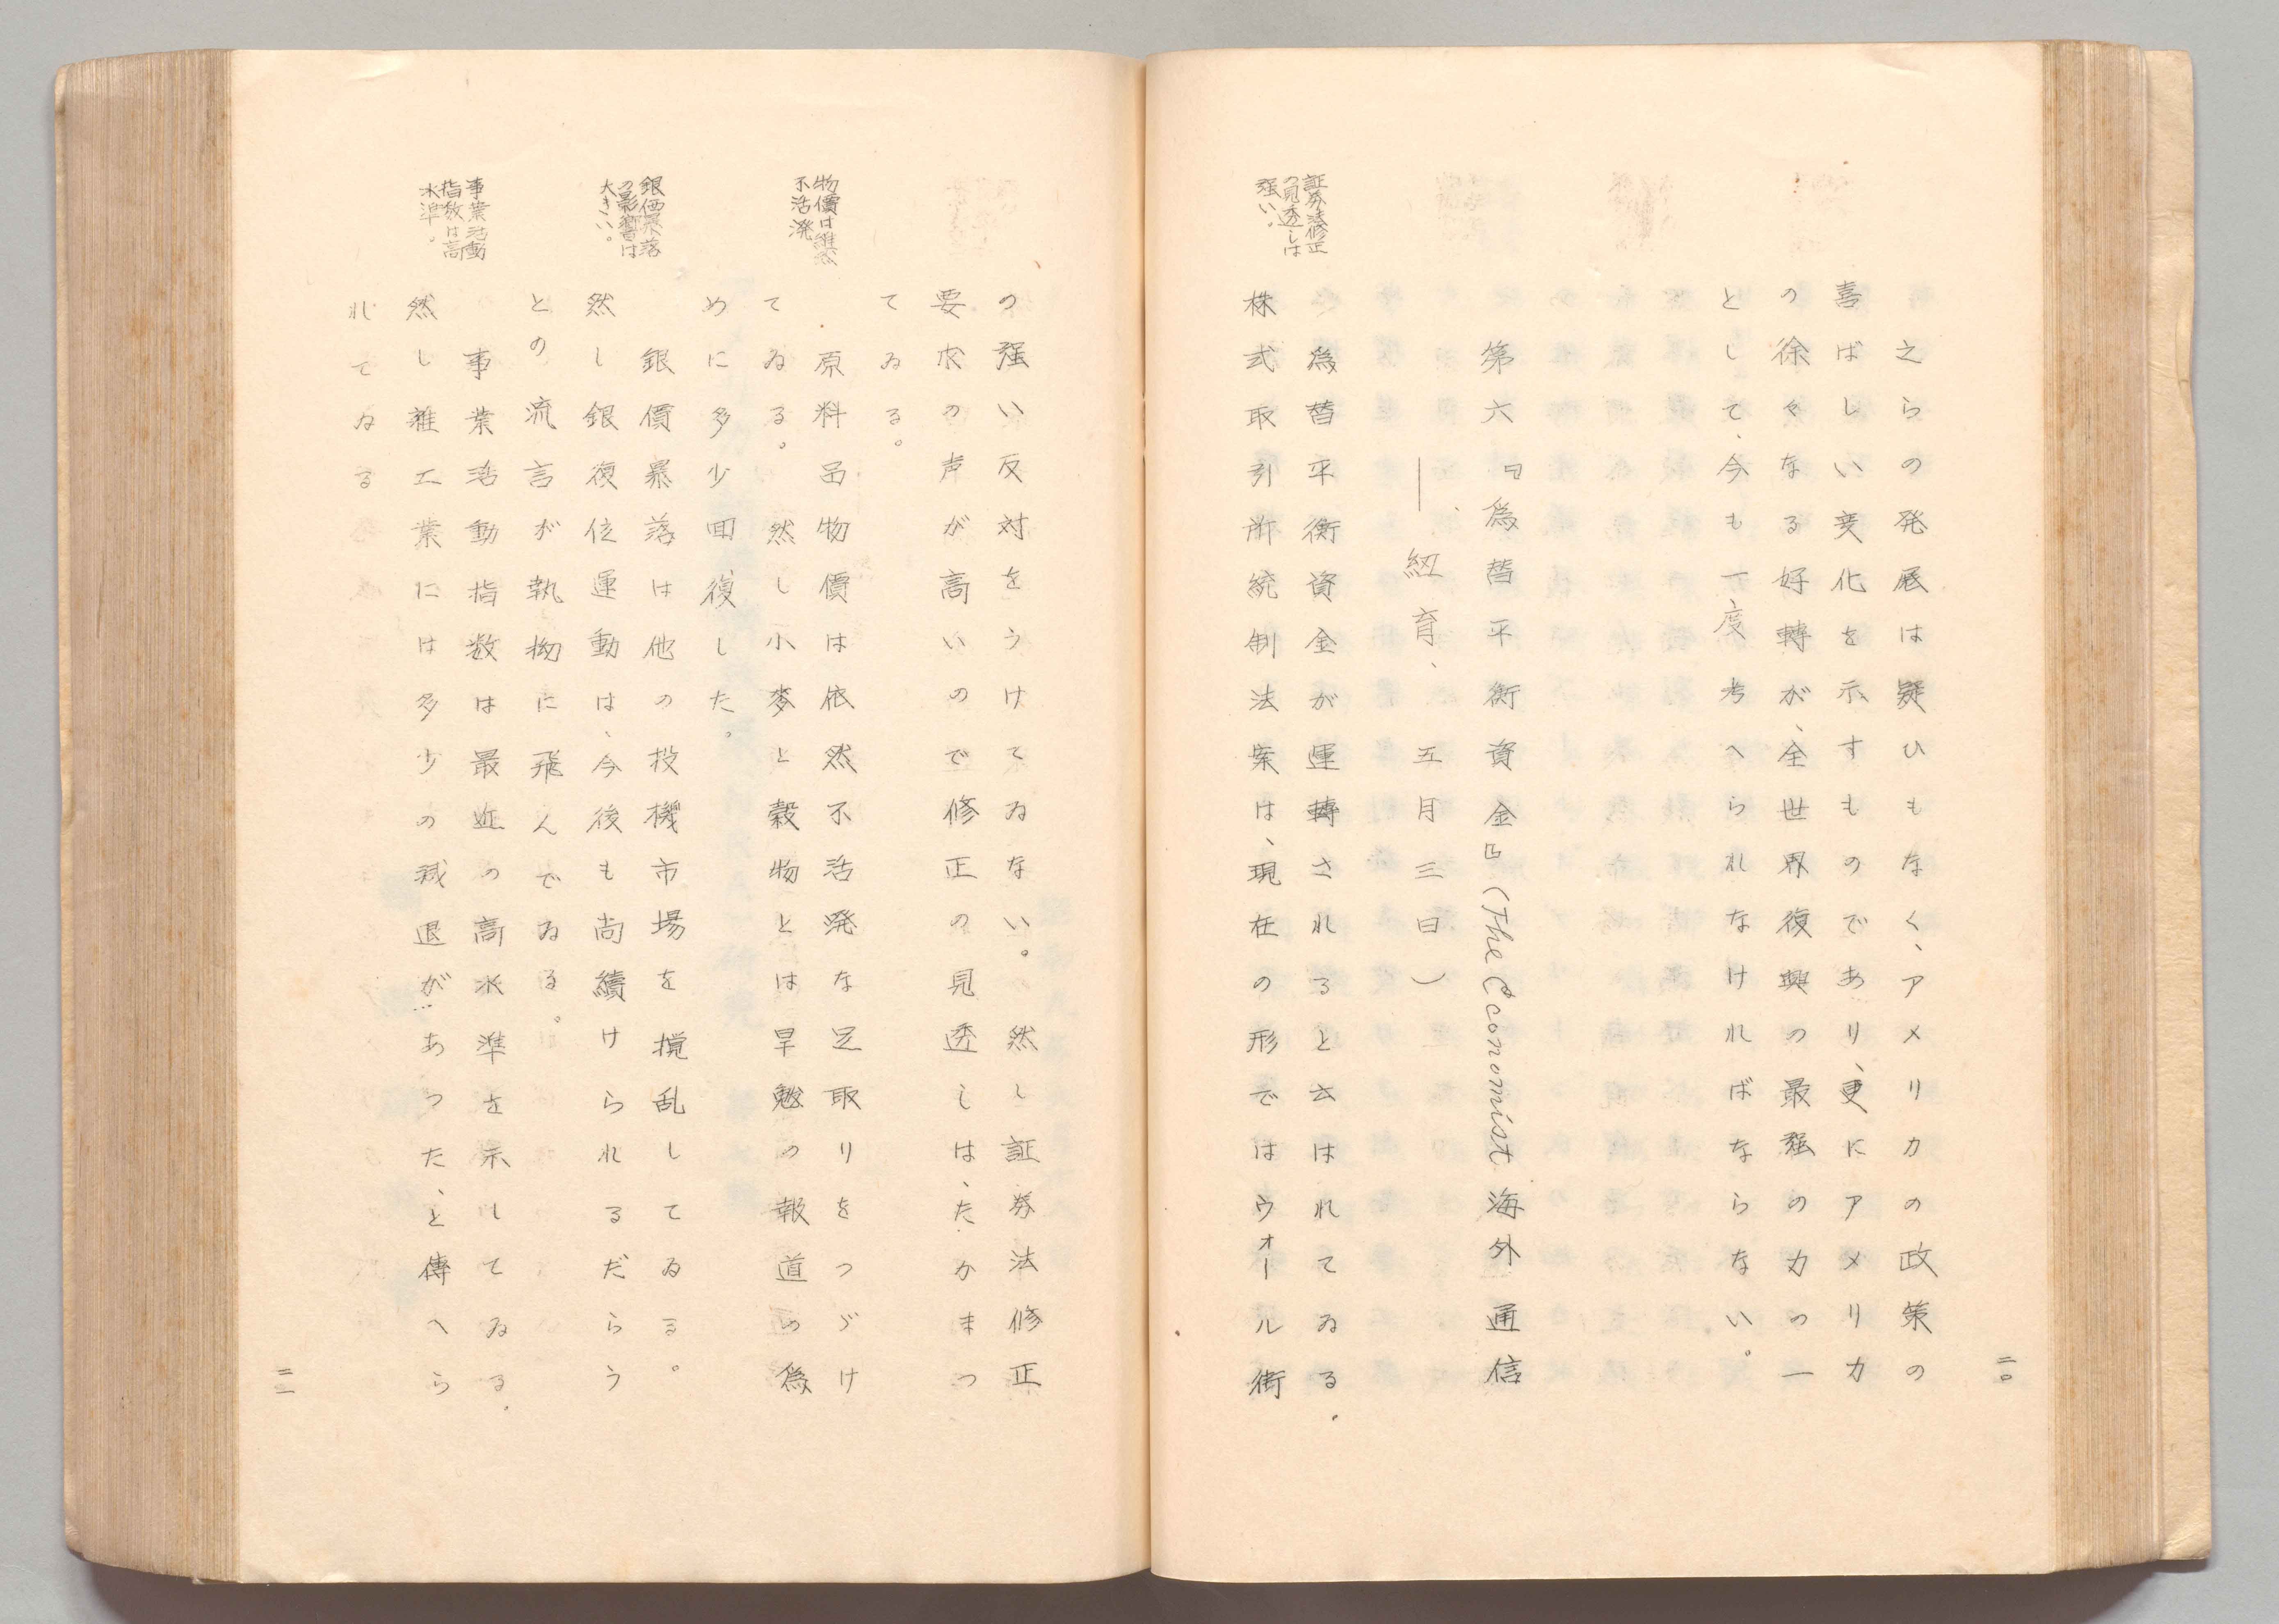 二〇
之らの発展は疑ひもなく、アメリカの政策の
喜ばしい変化を示すものであり、更にアメリカ
の徐々なる好轉が、全世界復興の最强の力の一
として、今も一度考へられなければならない。
第六『為替平衡資金』(The Economist 海外通信
――紐育、五月三日)
為替平衡資金が運轉されると云はれてゐる.
証券法修正
の見透しは
强い。
株式取引所統制法案は、現在の形ではウォール街
の强い反対をうけてゐない。然し証券法修正
要求の声が高いので修正の見透しは、たかまつ
てゐる。
物價は雖然
不活溌
原料品物價は依然不活溌な足取りをつづけ
てゐる。然し小麥と穀物とは旱魃の報道の為
めに多少回復した。
銀価暴落
の影響は
大きい。
銀價暴落は他の投機市場を撹乱してゐる。
然し銀復位運動は、今後も尚續けられるだらう
との流言が執拗に飛んでゐる。
事業活動
指数は高
水準。
事業活動指数は最近の高水準を示してゐる.
然し雜工業には多少の減退があつた、と傳へら
れてゐる
二一